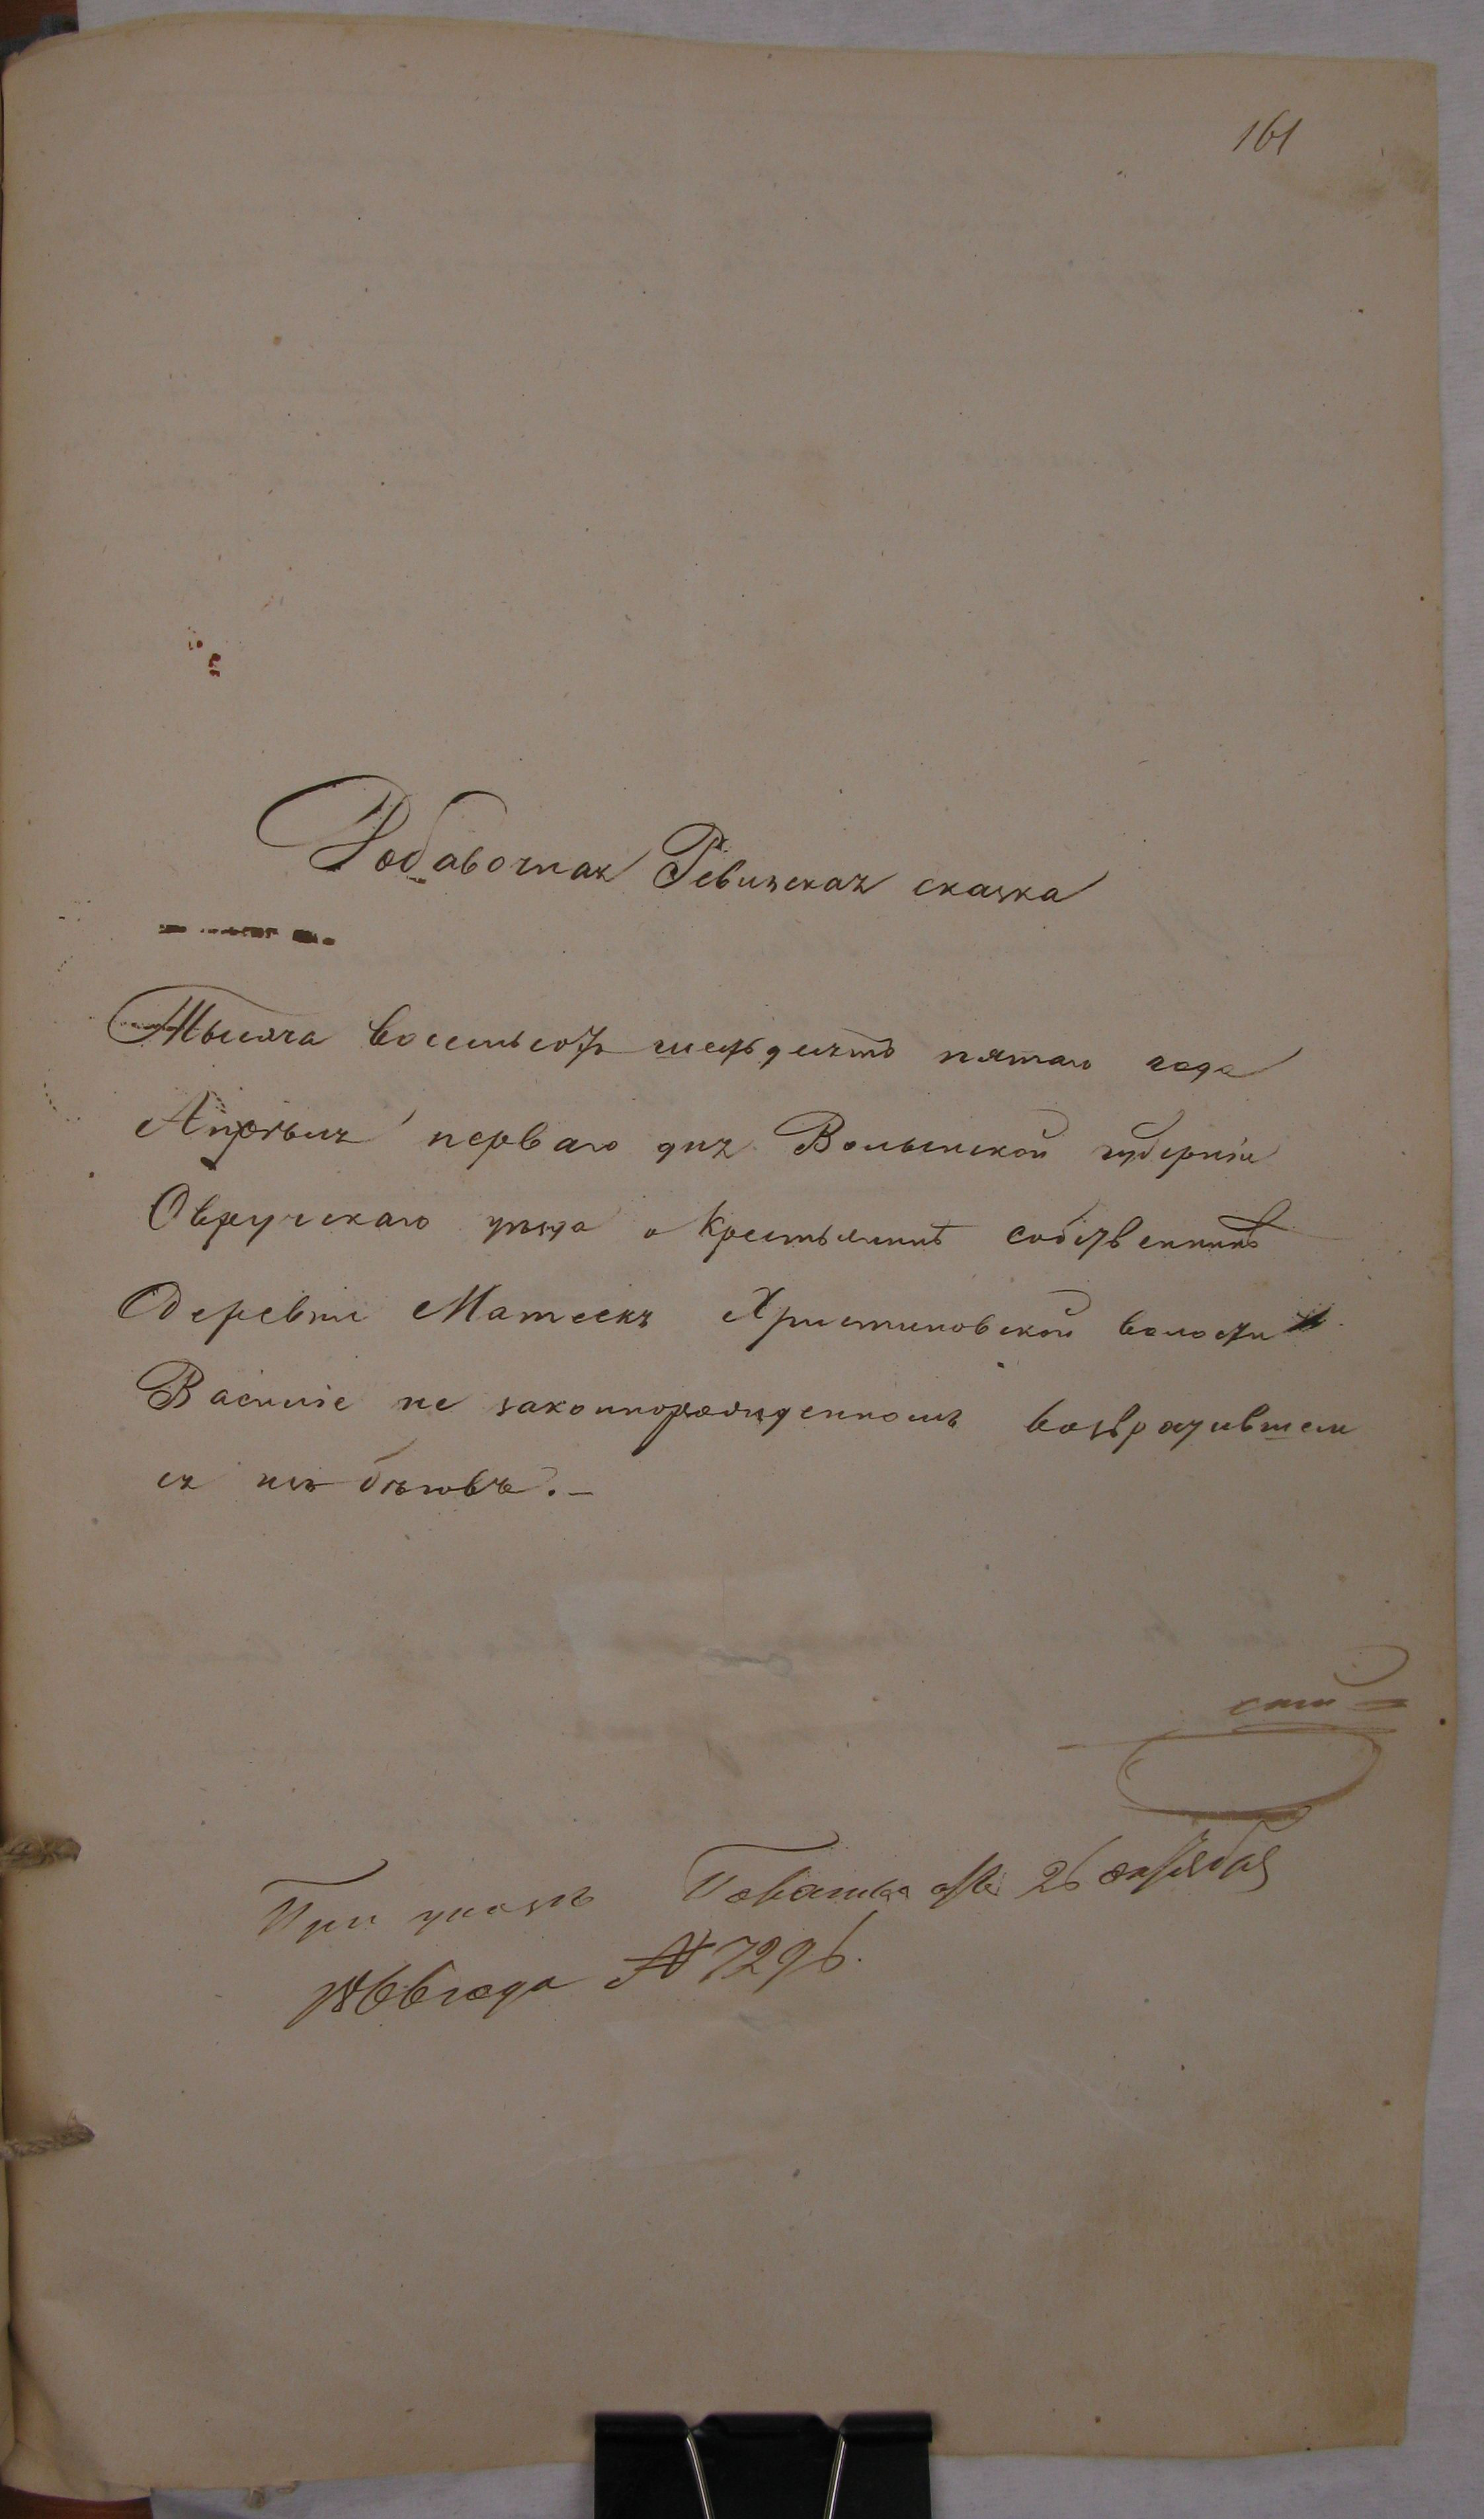 161
Добавочная Ревизская сказка
Тысяча восемьсотъ шестьдесятъ пятаго года
Апрѣля перваго дня Волынской губерніи
Овручскаго уѣзда о Крестьянинѣ собственникѣ
деревни Матеекъ Христиновской волости
Василіе не законнорожденномъ возвратившем
ся изъ бѣговъ.-
При указѣ 26 октября
1866 года № 7296.